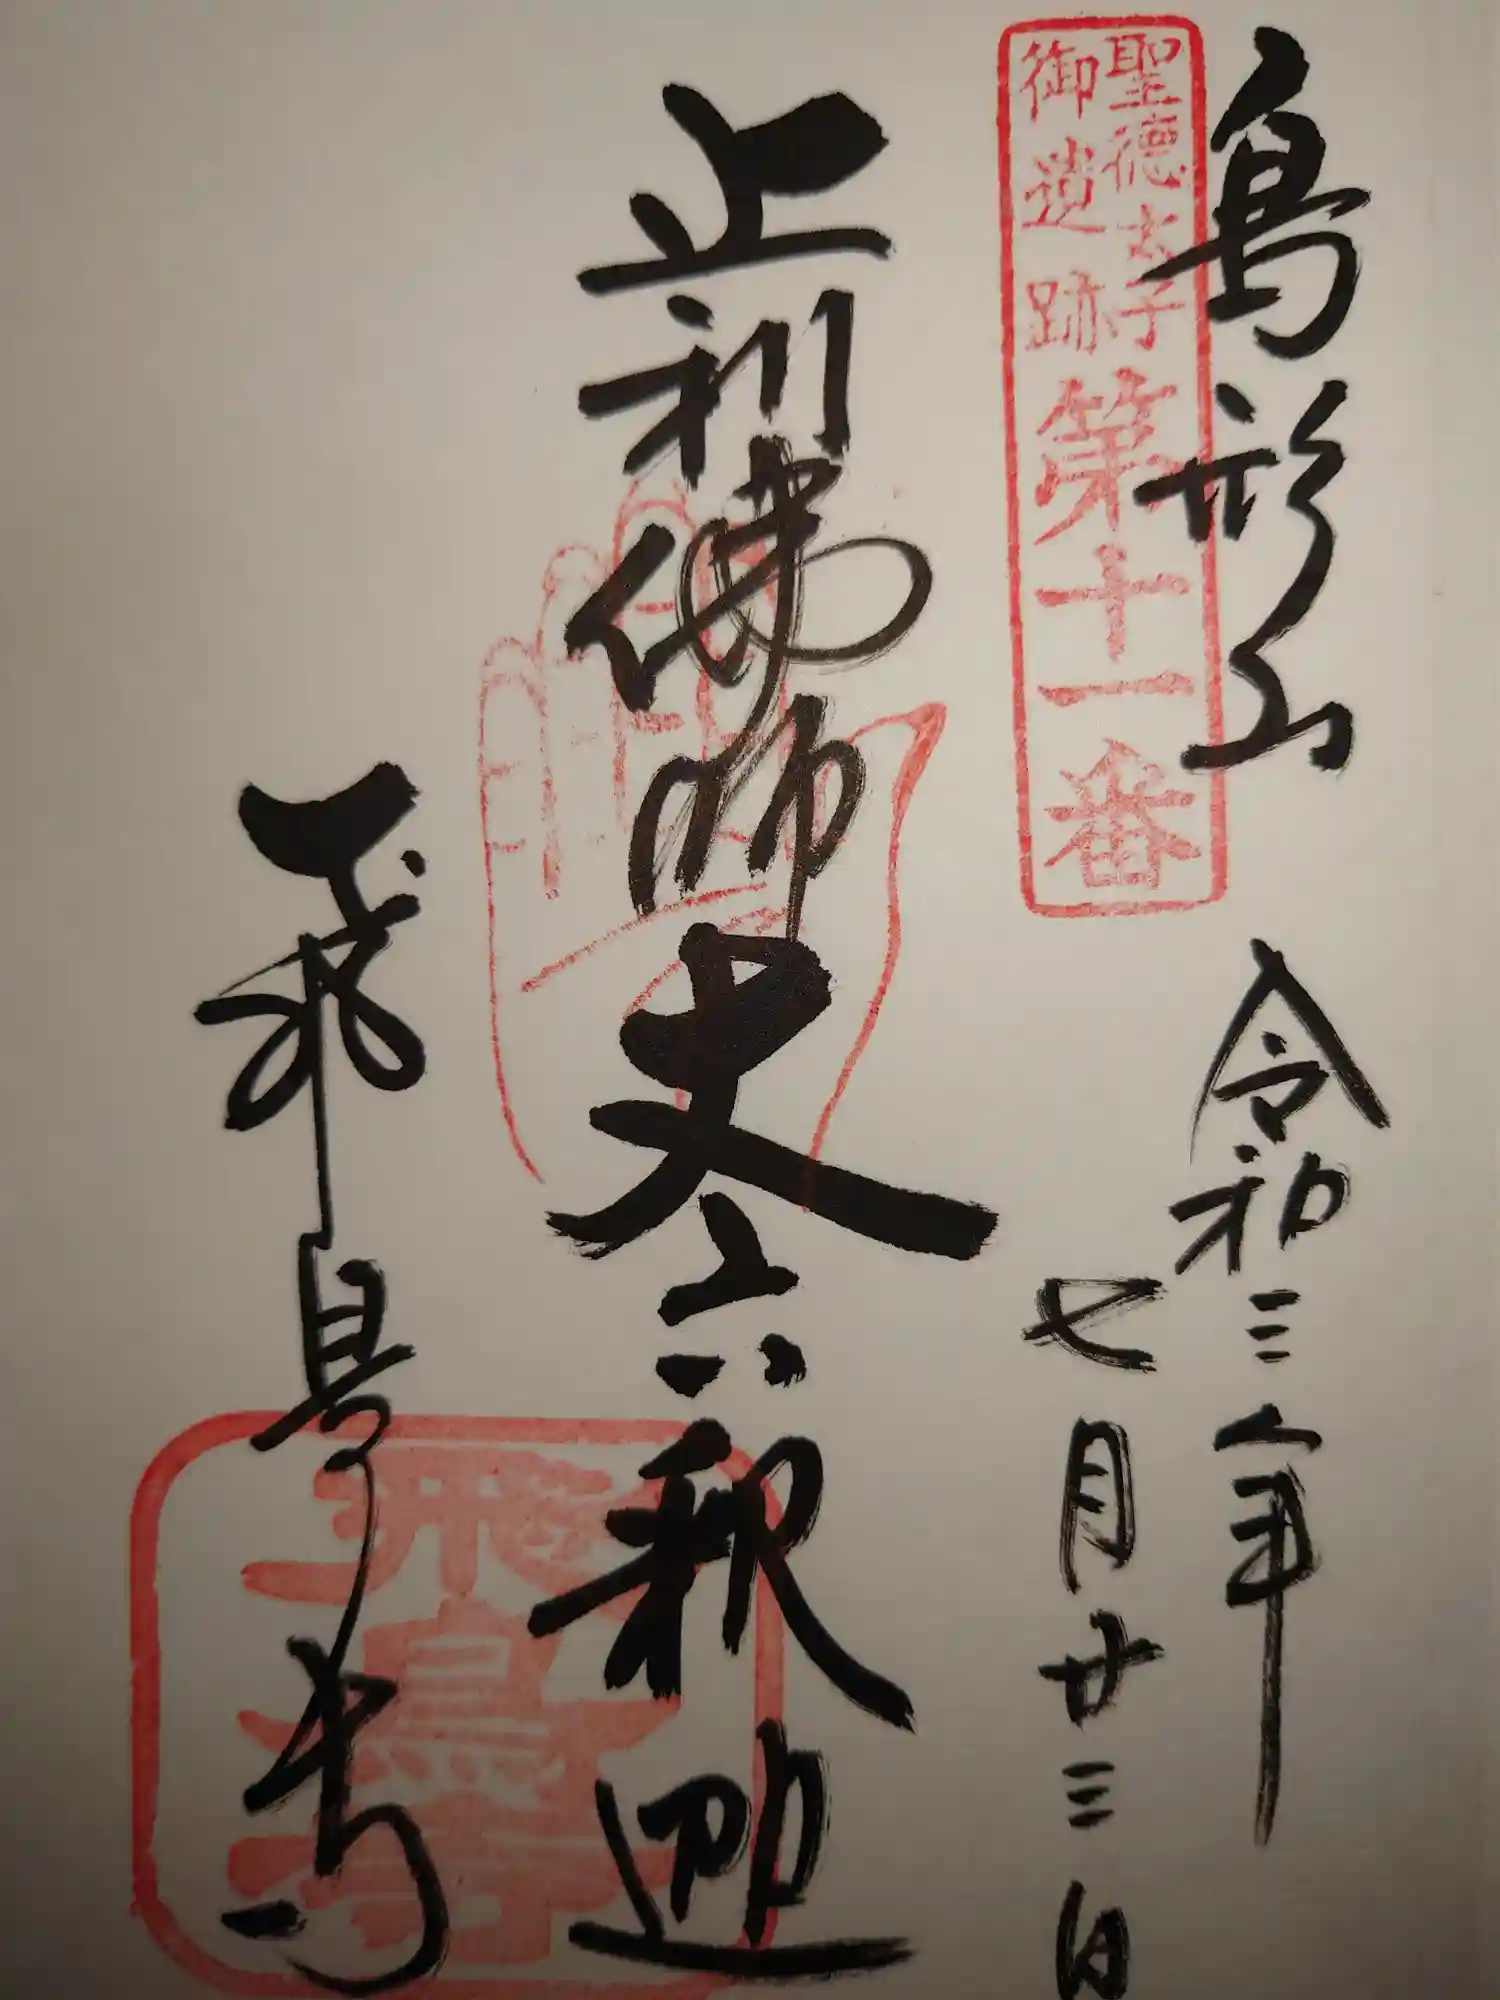 鳥形山
聖徳太子
御遺跡
第十一番
令和三年
七月廿三日
止利佛師丈六釈迦
飛鳥寺
飛鳥寺